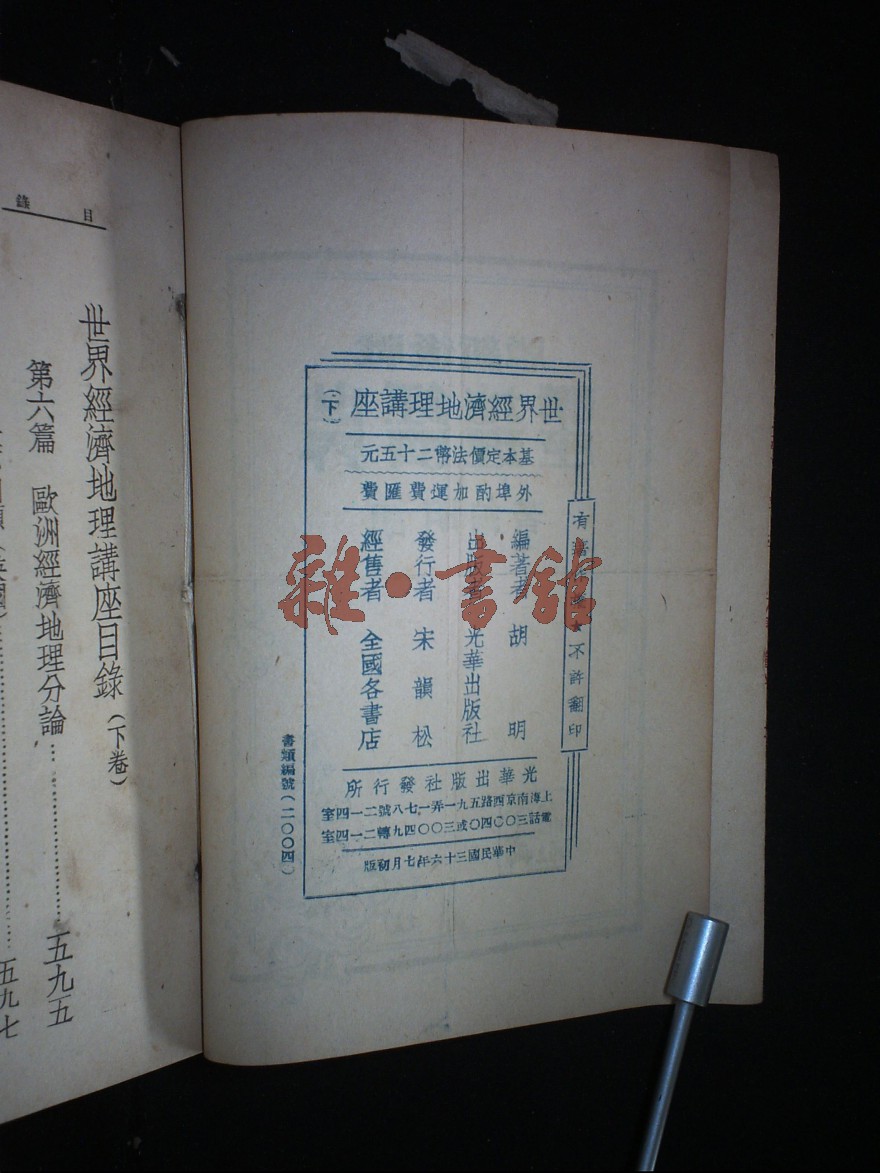 世界經濟地理講座(下)
基本定價法幣二十五元
外埠酌加運費匯費
編著者 胡明
出版者 光華出版社
發行者 宋韻松
經售者 全國各書店
光華出版社發行所
上海南京西路五九一弄一七八號二一四室
電話三〇〇四〇或三〇〇四九轉二一四室
中華民國三十六年七月初版
有★不許翻印
書類編號(二〇〇四)
雜·書館
目錄
世界經濟地理講座目錄(下卷)
第六篇 歐洲經濟地理分論…………五九五
五九七